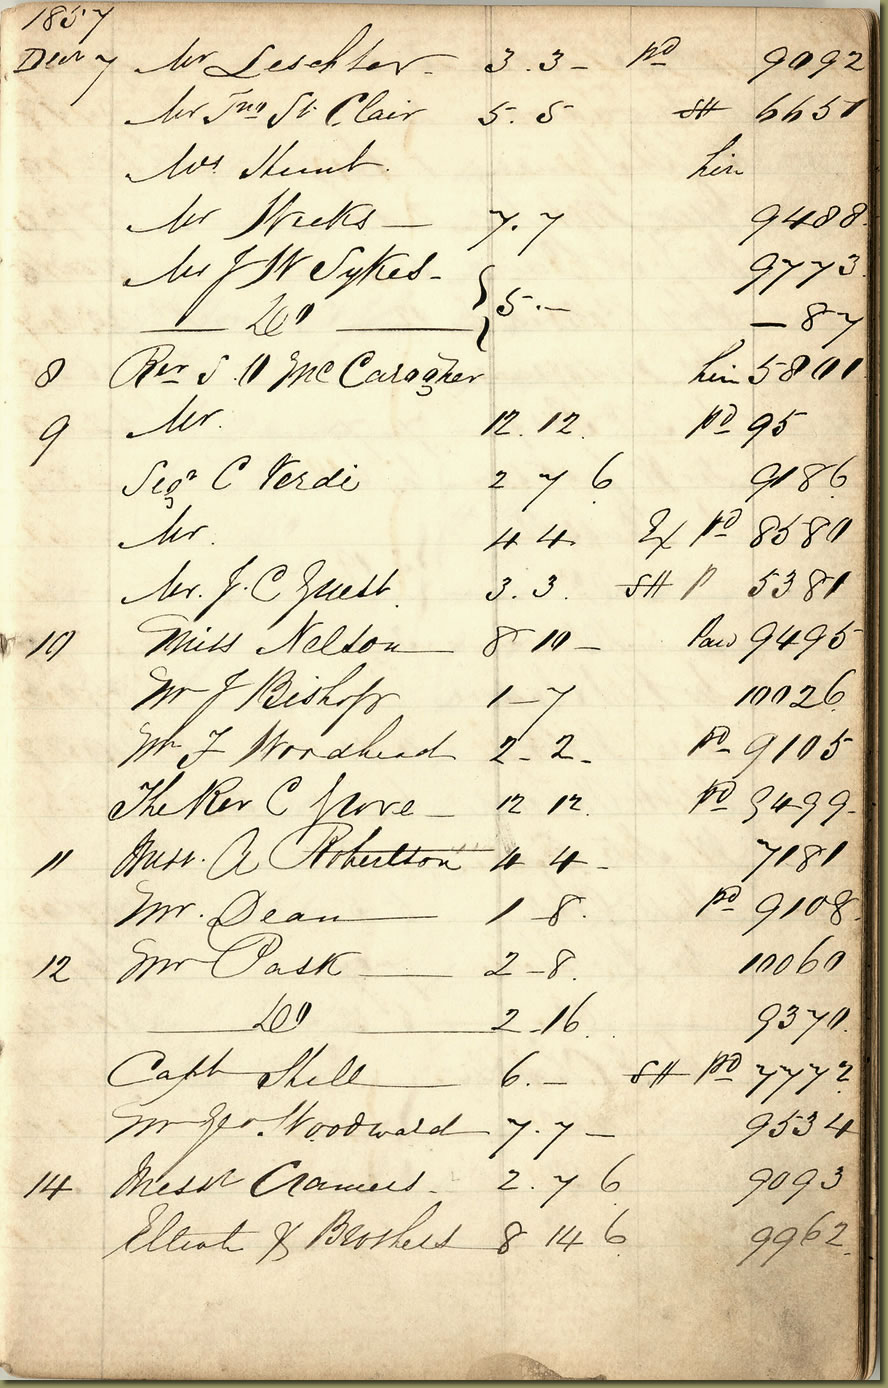 1857
Decr 7 Mr Leschter - 3.3 - pd 9092
Mr Jno St Clair 5.5 SH 6651
Mrs Hunt. hire
Mr Weeks — 7.7 9488
J W Sykes - 9773
— Do — 5.- — 87
8 Revr S. O McCaragher hire 5801
9 Mr. 12.12. pd 95
Sigr C Verdi 2 7 6 9186
Mr. 4 4 Ex pd 8580
Mr. J. C Guest. 3.3. SH P 5381
10 Miss Nelson — 8 10 - Paid 9495
Mr J Bishop 1-7 10026
Mr F Woodhead 2-2- pd 9105
The Rev C Grove — 12 12. pd 9499
11 Miss. A Robertson 4 4 - 7181
Mr. Dean — 1-8. pd 9108
12 Mr Pask — 2-8. 10060
— Do — 2-16. 9370
Capt Shell — 6.- SH pd 7772
Mr Geo. Woodward - 7.7 - 9534
14 Messrs Cramers. 2.7 6 9093
Elliot & Brothers 8 14 6 9962